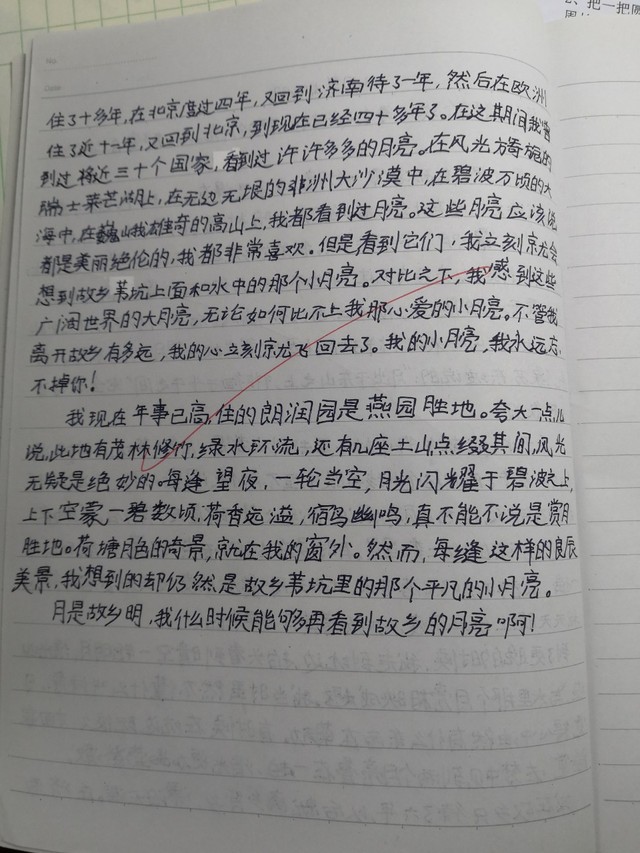 、把一把
住了十多年,在北京度过四年,又回到济南待了一年,然后在欧洲
住了近十一年,又回到北京,到现在已经四十多年了。在这期间我曾
到过将近三十个国家,看到过许许多多的月亮。在风光旖旎的
瑞士莱芒湖上,在无边无垠的非洲大沙漠中,在碧波万顷的大
海中,在巍峨雄奇的高山上,我都看到过月亮。这些月亮应该说
都是美丽绝伦的,我都非常喜欢。但是看到它们,我立刻就会
想到故乡苇坑上面和水中的那个小月亮。对比之下,我感到这些
广阔世界的大月亮,无论如何比不上我那心爱的小月亮。不管我
离开故乡有多远,我的心立刻就飞回去了。我的小月亮,我永远忘
不掉你!
我现在年事已高,住的朗润园是燕园胜地。夸大一点儿
说,此地有茂林修竹,绿水环流,还有几座土山点缀其间,风光
无疑是绝妙的。每逢望夜,一轮当空,月光闪耀于碧波之上,
上下空蒙,一碧数顷,荷香远溢,宿鸟幽鸣,真不能不说是赏月
胜地。荷塘月色的奇景,就在我的窗外。然而,每缝这样的良辰
美景,我想到的却仍然是故乡苇坑里的那个平凡的小月亮。
月是故乡明,我什么时候能够再看到故乡的月亮啊!